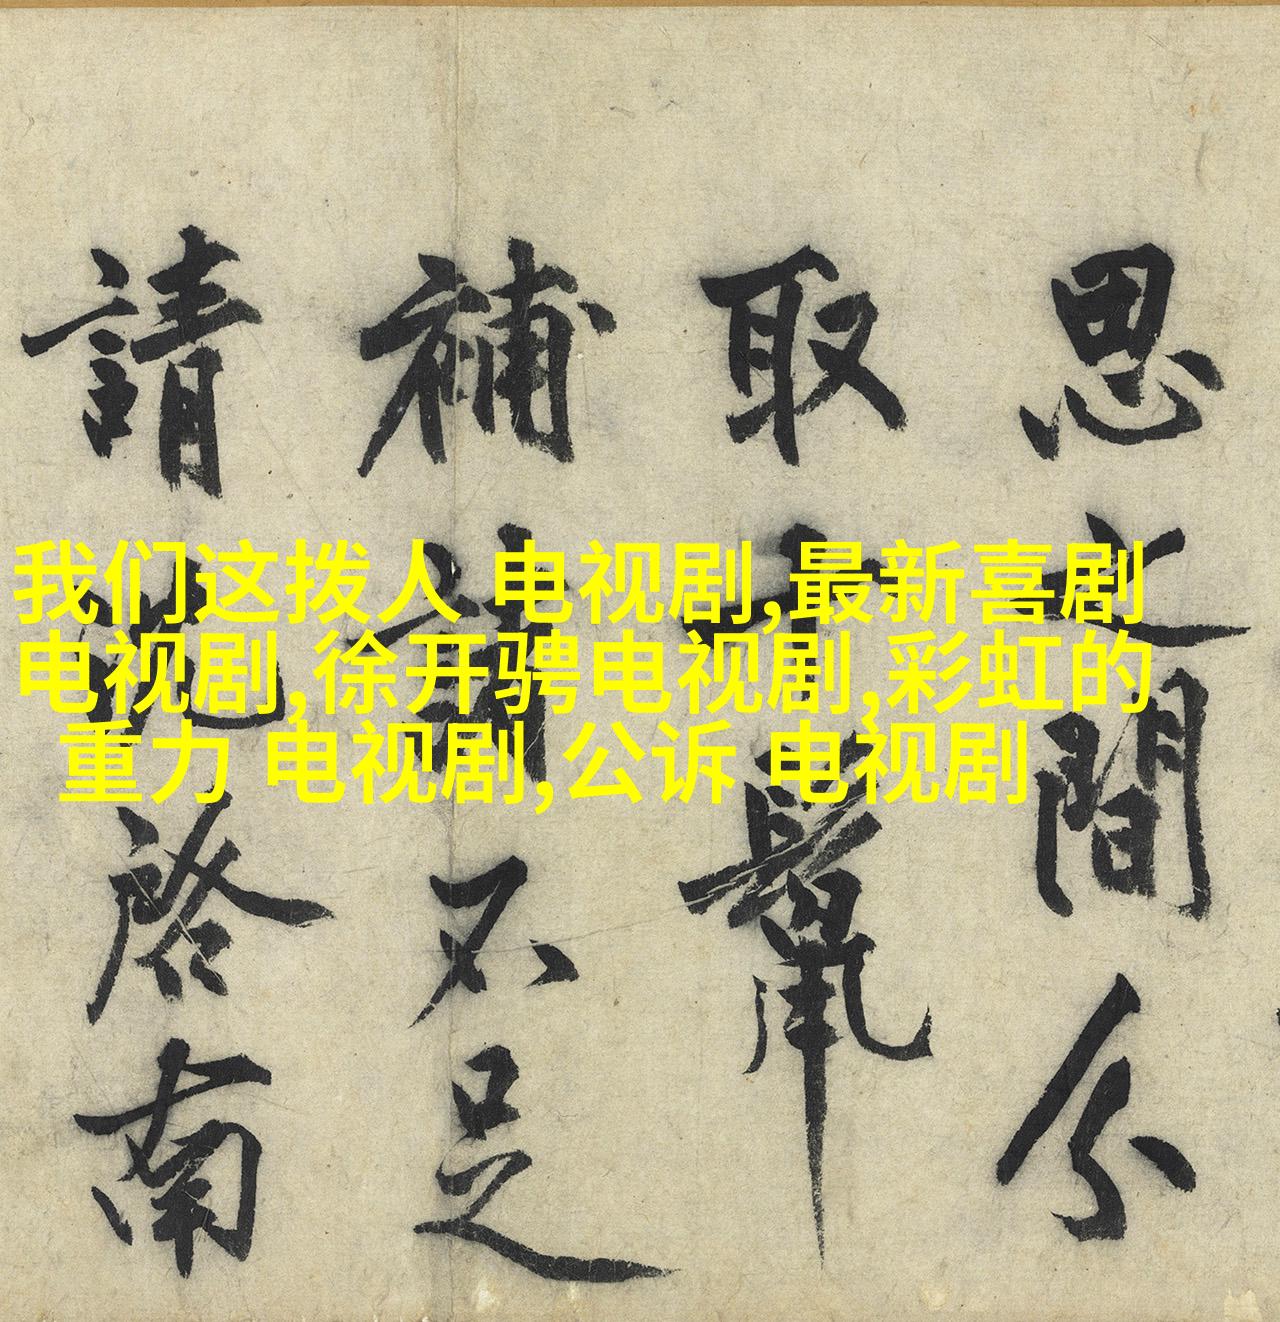 我们这拨人 电视剧,最新喜剧
电视剧,徐开骋电视剧,彩虹的
重力 电视剧,公诉 电视剧
思之間分
取
補請不足
請 啓南